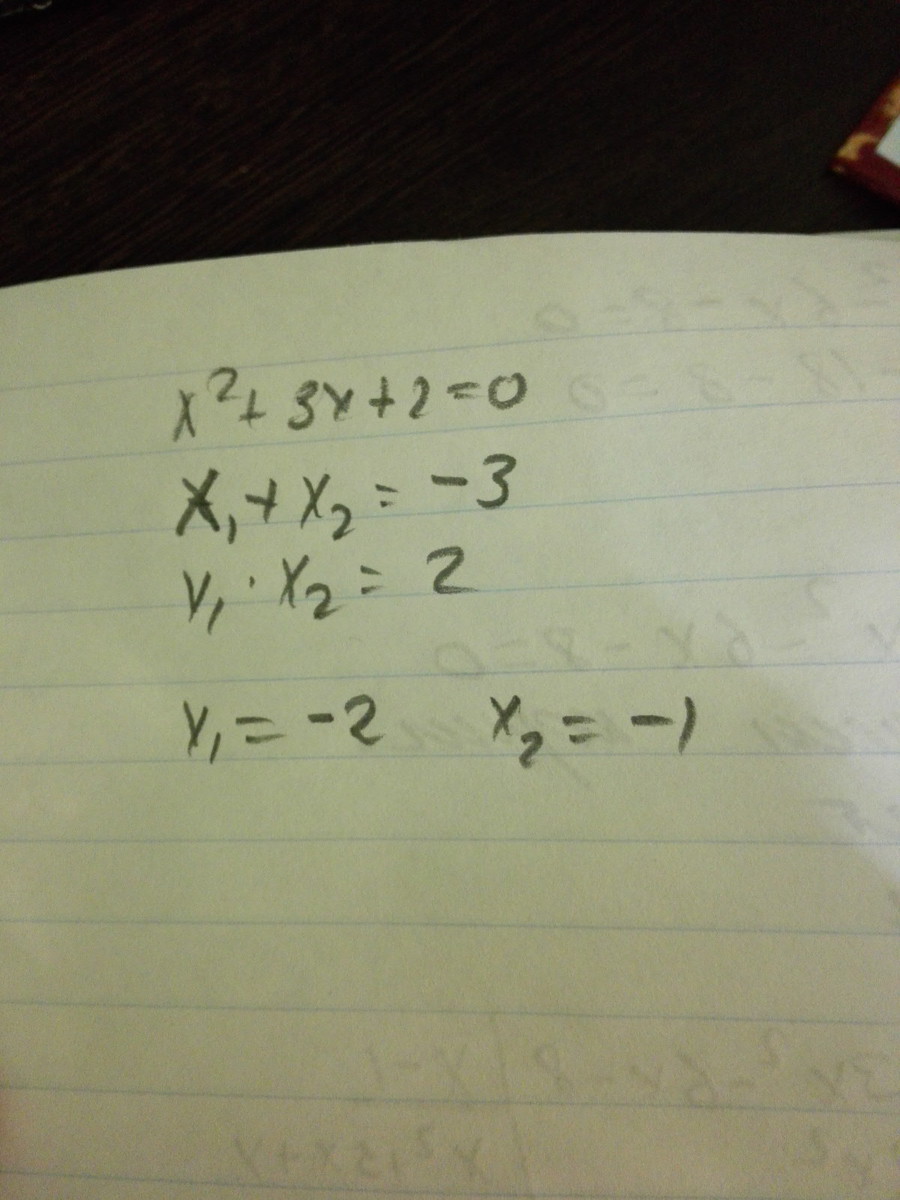 x²+ 3x+2=0
x₁+ x₂ = -3
x₁ · x₂ = 2
x₁ = -2 x₂ = -1